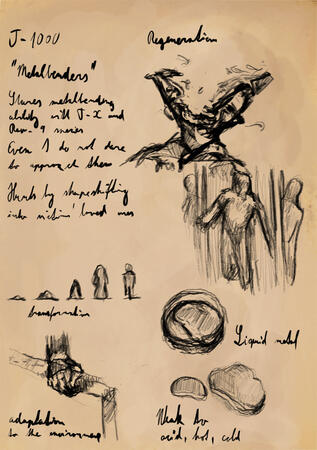 J-1000
Regeneration
"Metalbenders"
Shares metalbending
ability with J-X and
Rev-9 series
Even I do not dare
to approach them
Hunts by shapeshifting
into victims' loved ones
transformation
Liquid metal
adaptation
to the environment
Weak to
acid, hot, cold